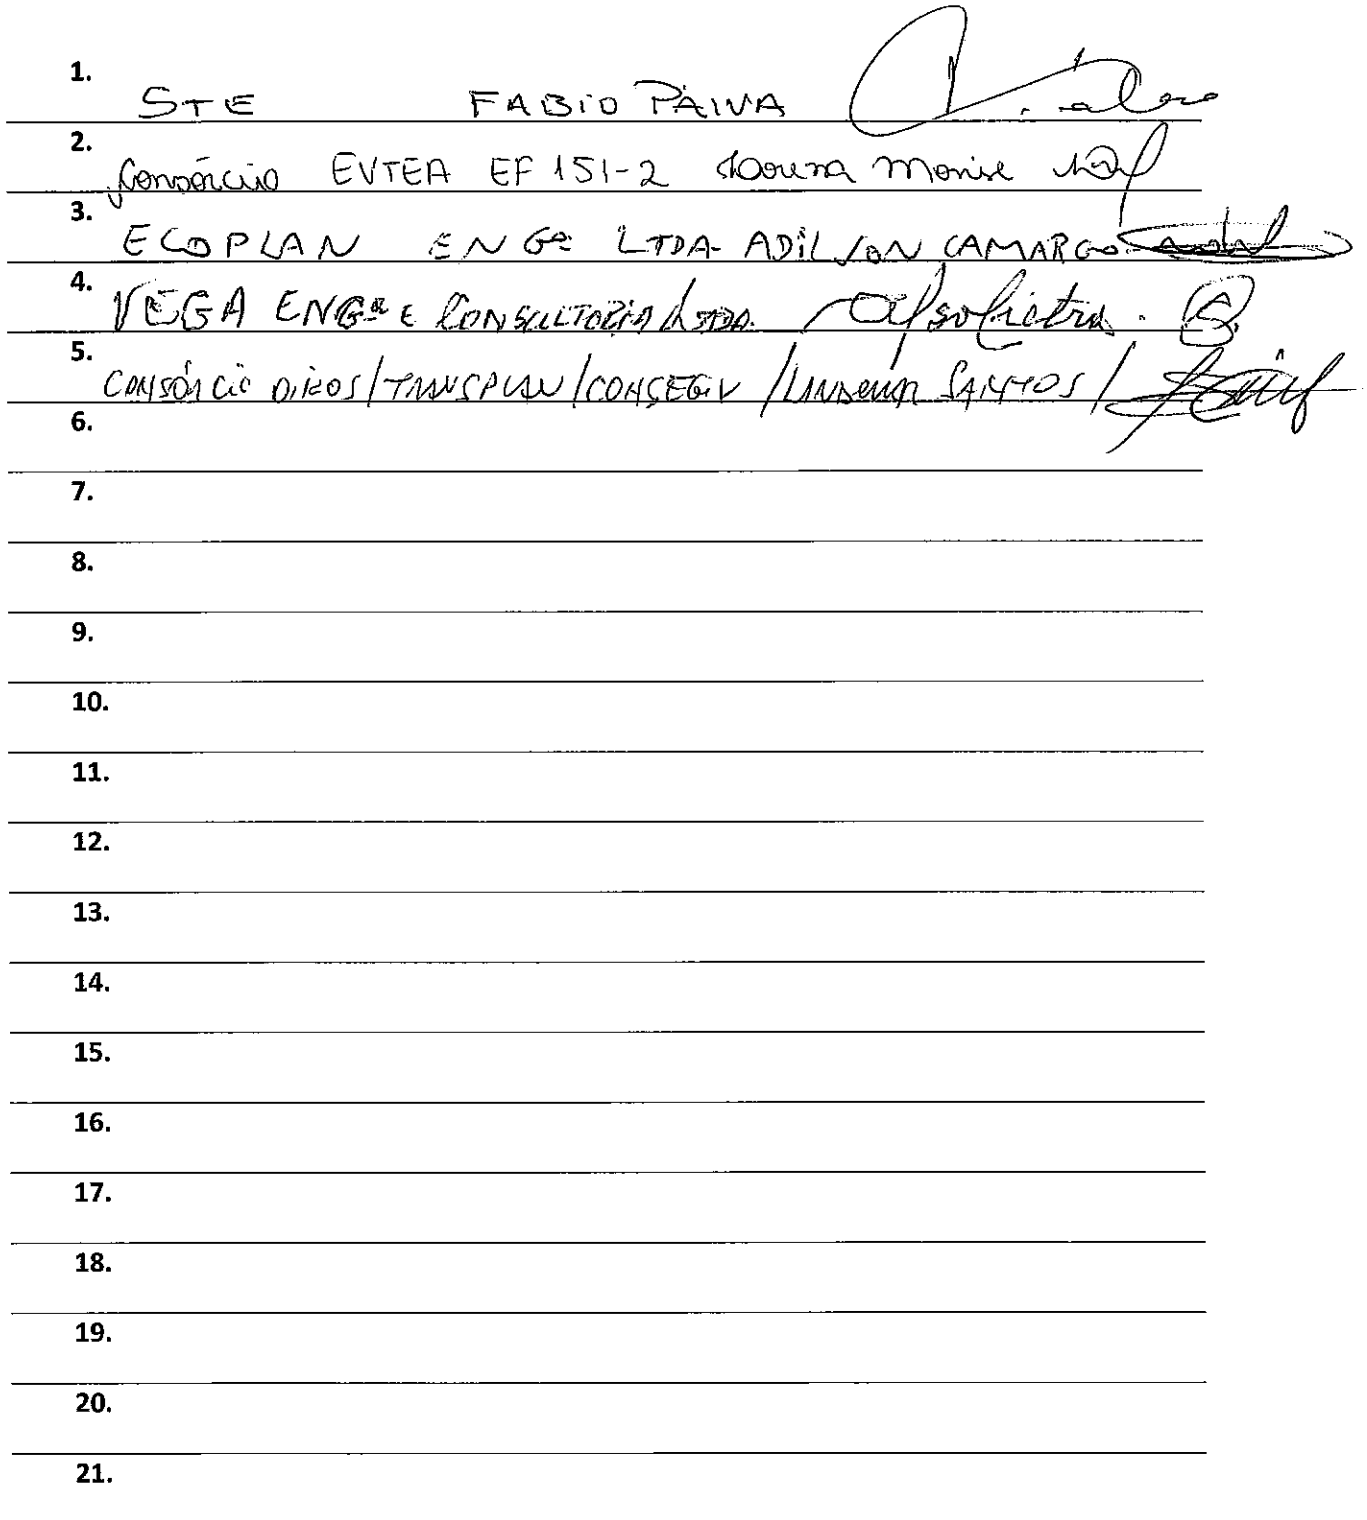 1. STE FABIO PAIVA
2. Consórcio EVTEA EF 151-2 Lorena Monise
3. ECOPLAN ENGª LTDA- ADILSON CAMARGO
4. VEGA ENGª E CONSULTORIA LTDA.
5. CONSÓRCIO DIKOS/TRANSPLAN/CONSEGV / SANTOS /
6.
7.
8.
9.
10.
11.
12.
13.
14.
15.
16.
17.
18.
19.
20.
21.